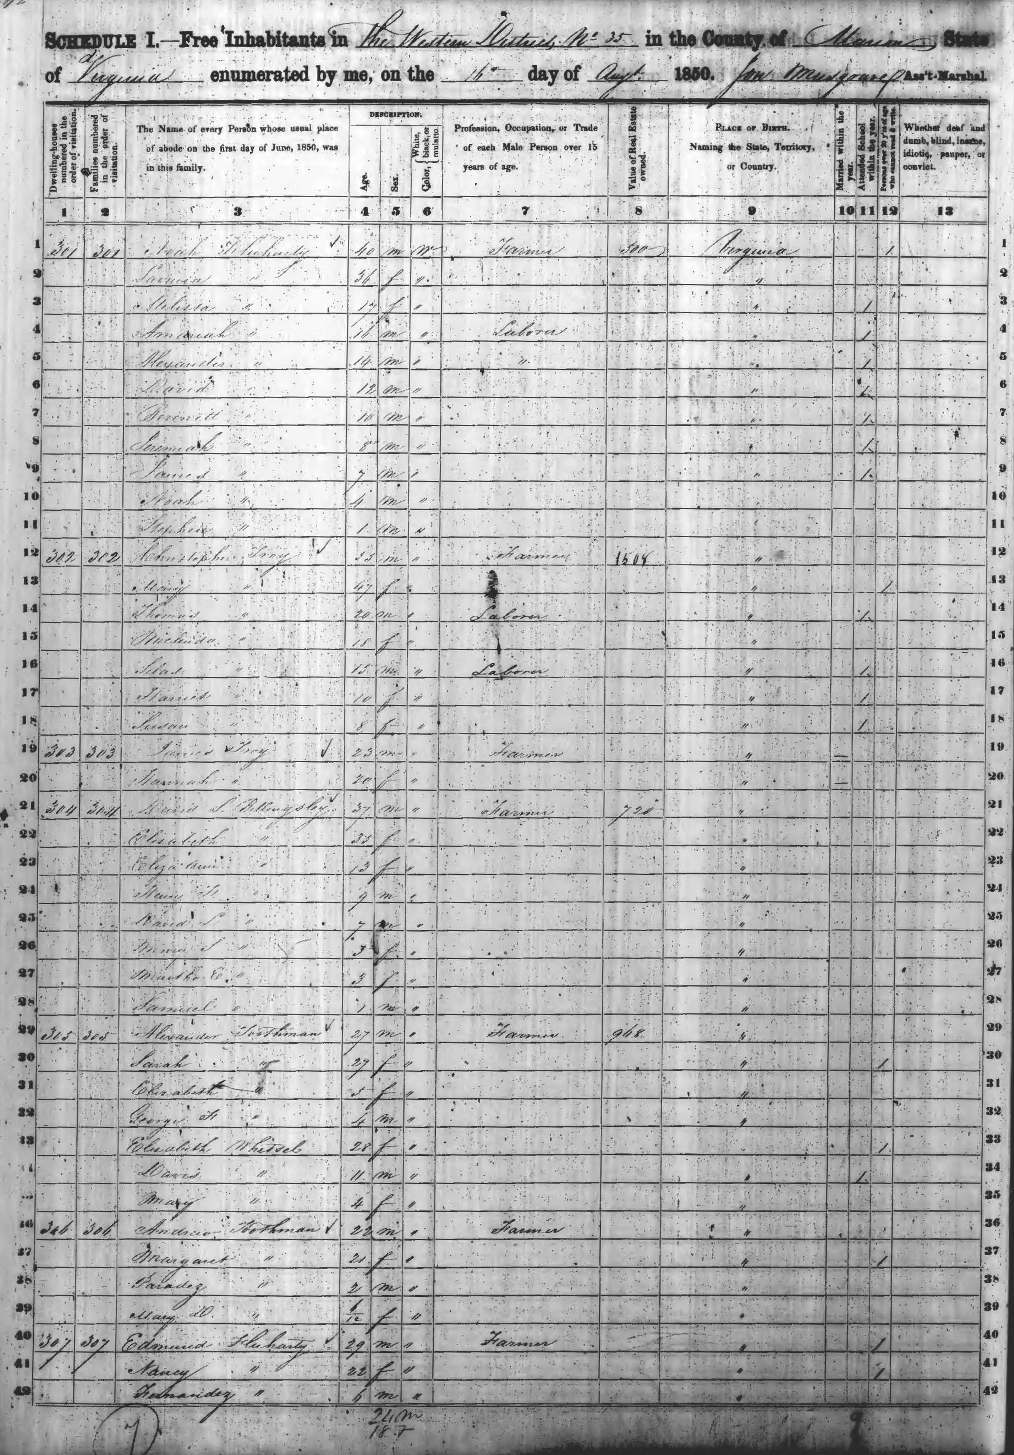 SCHEDULE I.—Free Inhabitants in The Western District No 25 in the County of Marion State
of Virginia enumerated by me, on the 16th day of Augt 1850. Ass't-Marshal.
Dwelling-houses numbered in the order of visitation.
Families numbered in the order of visitation.
The Name of every Person whose usual place of abode on the first day of June, 1850, was in this family.
DESCRIPTION.
Age.
Sex.
Color, White, black, or mulatto.
Profession, Occupation, or Trade of each Male Person over 15 years of age.
Value of Real Estate owned.
PLACE OF BIRTH. Naming the State, Territory, or Country.
Married within the year.
Attended School within the year.
Persons over 20 y'rs of age who cannot read & write.
Whether deaf and dumb, blind, insane, idiotic, pauper, or convict.
1 2 3 4 5 6 7 8 9 10 11 12 13
1 301 301 Noah Fluharty 40 m W Farmer 500 Virginia 1 1
2 36 f " " 2
3 Melissa " 17 f " " 1 3
4 Amaziah " 16 m " Laborer " 1 4
5 Alexander " 14 m " " " 1 5
6 David " 12 m " " 1 6
7 " 10 m " " 1 7
8 Jeremiah " 8 m " " 1 8
9 James " 7 m " " 1 9
10 Noah " 4 m " 10
11 Stephen " 1 m " 11
12 302 302 Christopher Troy m " Farmer 1508 " 12
13 Mary " 47 f " " 1 13
14 Thomas " 20 m " Laborer " 1 14
15 Malinda " 18 f " " 15
16 Silas " 15 m " Laborer " 1 16
17 " 10 f " " 1 17
18 Susan " 8 f " " 1 18
19 303 303 James Troy 23 m " Farmer " 19
20 Hannah " 20 f " " 20
21 304 304 David S Billingsley 37 m " Farmer 720 " 21
22 Elizabeth " 35 f " " 22
23 Eliza Ann " 13 f " " 23
24 Henry " 9 m " " 24
25 David S " 7 m " " 25
26 S " 3 f " " 26
27 Martha E " 3 f " " 27
28 Samuel " 1 m " " 28
29 305 305 Alexander Toothman 27 m " Farmer 948 " 29
30 Sarah " 27 f " " 1 30
31 Elizabeth " 5 f " " 31
32 George F " 4 m " " 32
33 Elizabeth Whetsel 28 f " " 1 33
34 David " 11 m " " 1 34
35 Mary " 4 f " " 35
36 306 306 Andrew Toothman 22 m " Farmer " 36
37 Margaret " 21 f " " 1 37
38 " 2 m " " 38
39 Mary " 6/12 f " " 39
40 307 307 Edmund Fluharty 29 m " Farmer " 1 40
41 Nancy " 22 f " " 1 41
42 Fernandez " 6 m " " 42
24 m
18 f